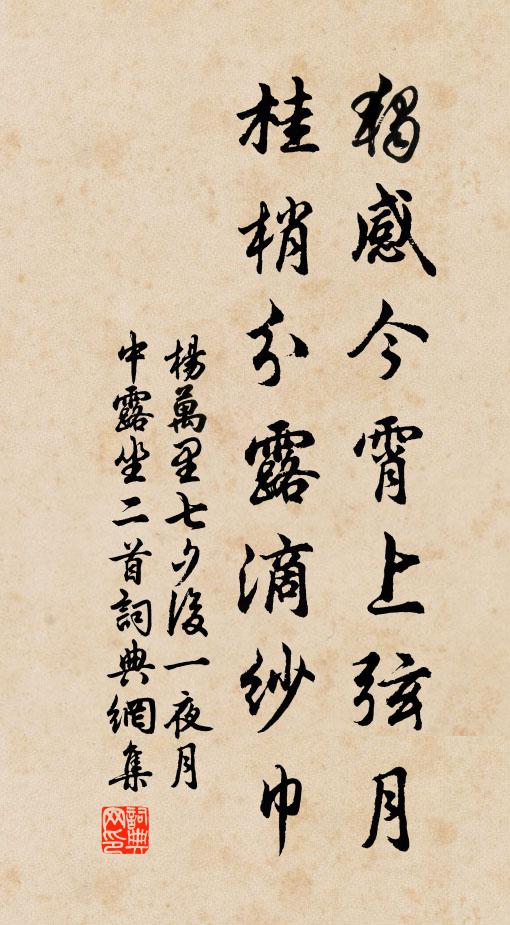 獨感今霄上弦月
桂梢分露滴紗巾
楊萬里七夕後一夜月
中露坐二首詞典網集
詞典
网印